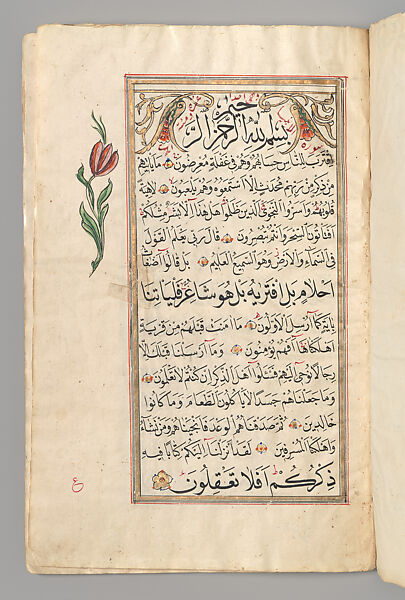 بسم الله الرحمن الرحيم
اقترب للناس حسابهم وهم في غفلة معرضون ما ياتيهم
من ذكر من ربهم محدث الا استمعوه وهم يلعبون لاهية
قلوبهم واسروا النجوى الذين ظلموا هل هذا الا بشر مثلكم
افتاتون السحر وانتم تبصرون قال ربي يعلم القول
في السماء والارض وهو السميع العليم بل قالوا اضغاث
احلام بل افتريه بل هو شاعر فلياتنا
باية كما ارسل الاولون ما امنت قبلهم من قرية
اهلكناها افهم يؤمنون وما ارسلنا قبلك الا
رجالا نوحي اليهم فسئلوا اهل الذكر ان كنتم لا تعلمون
وما جعلناهم جسدا لا ياكلون الطعام وما كانوا
خالدين ثم صدقناهم الوعد فانجيناهم ومن نشاء
واهلكنا المسرفين لقد انزلنا اليكم كتابا فيه
ذكركم افلا تعقلون
ع